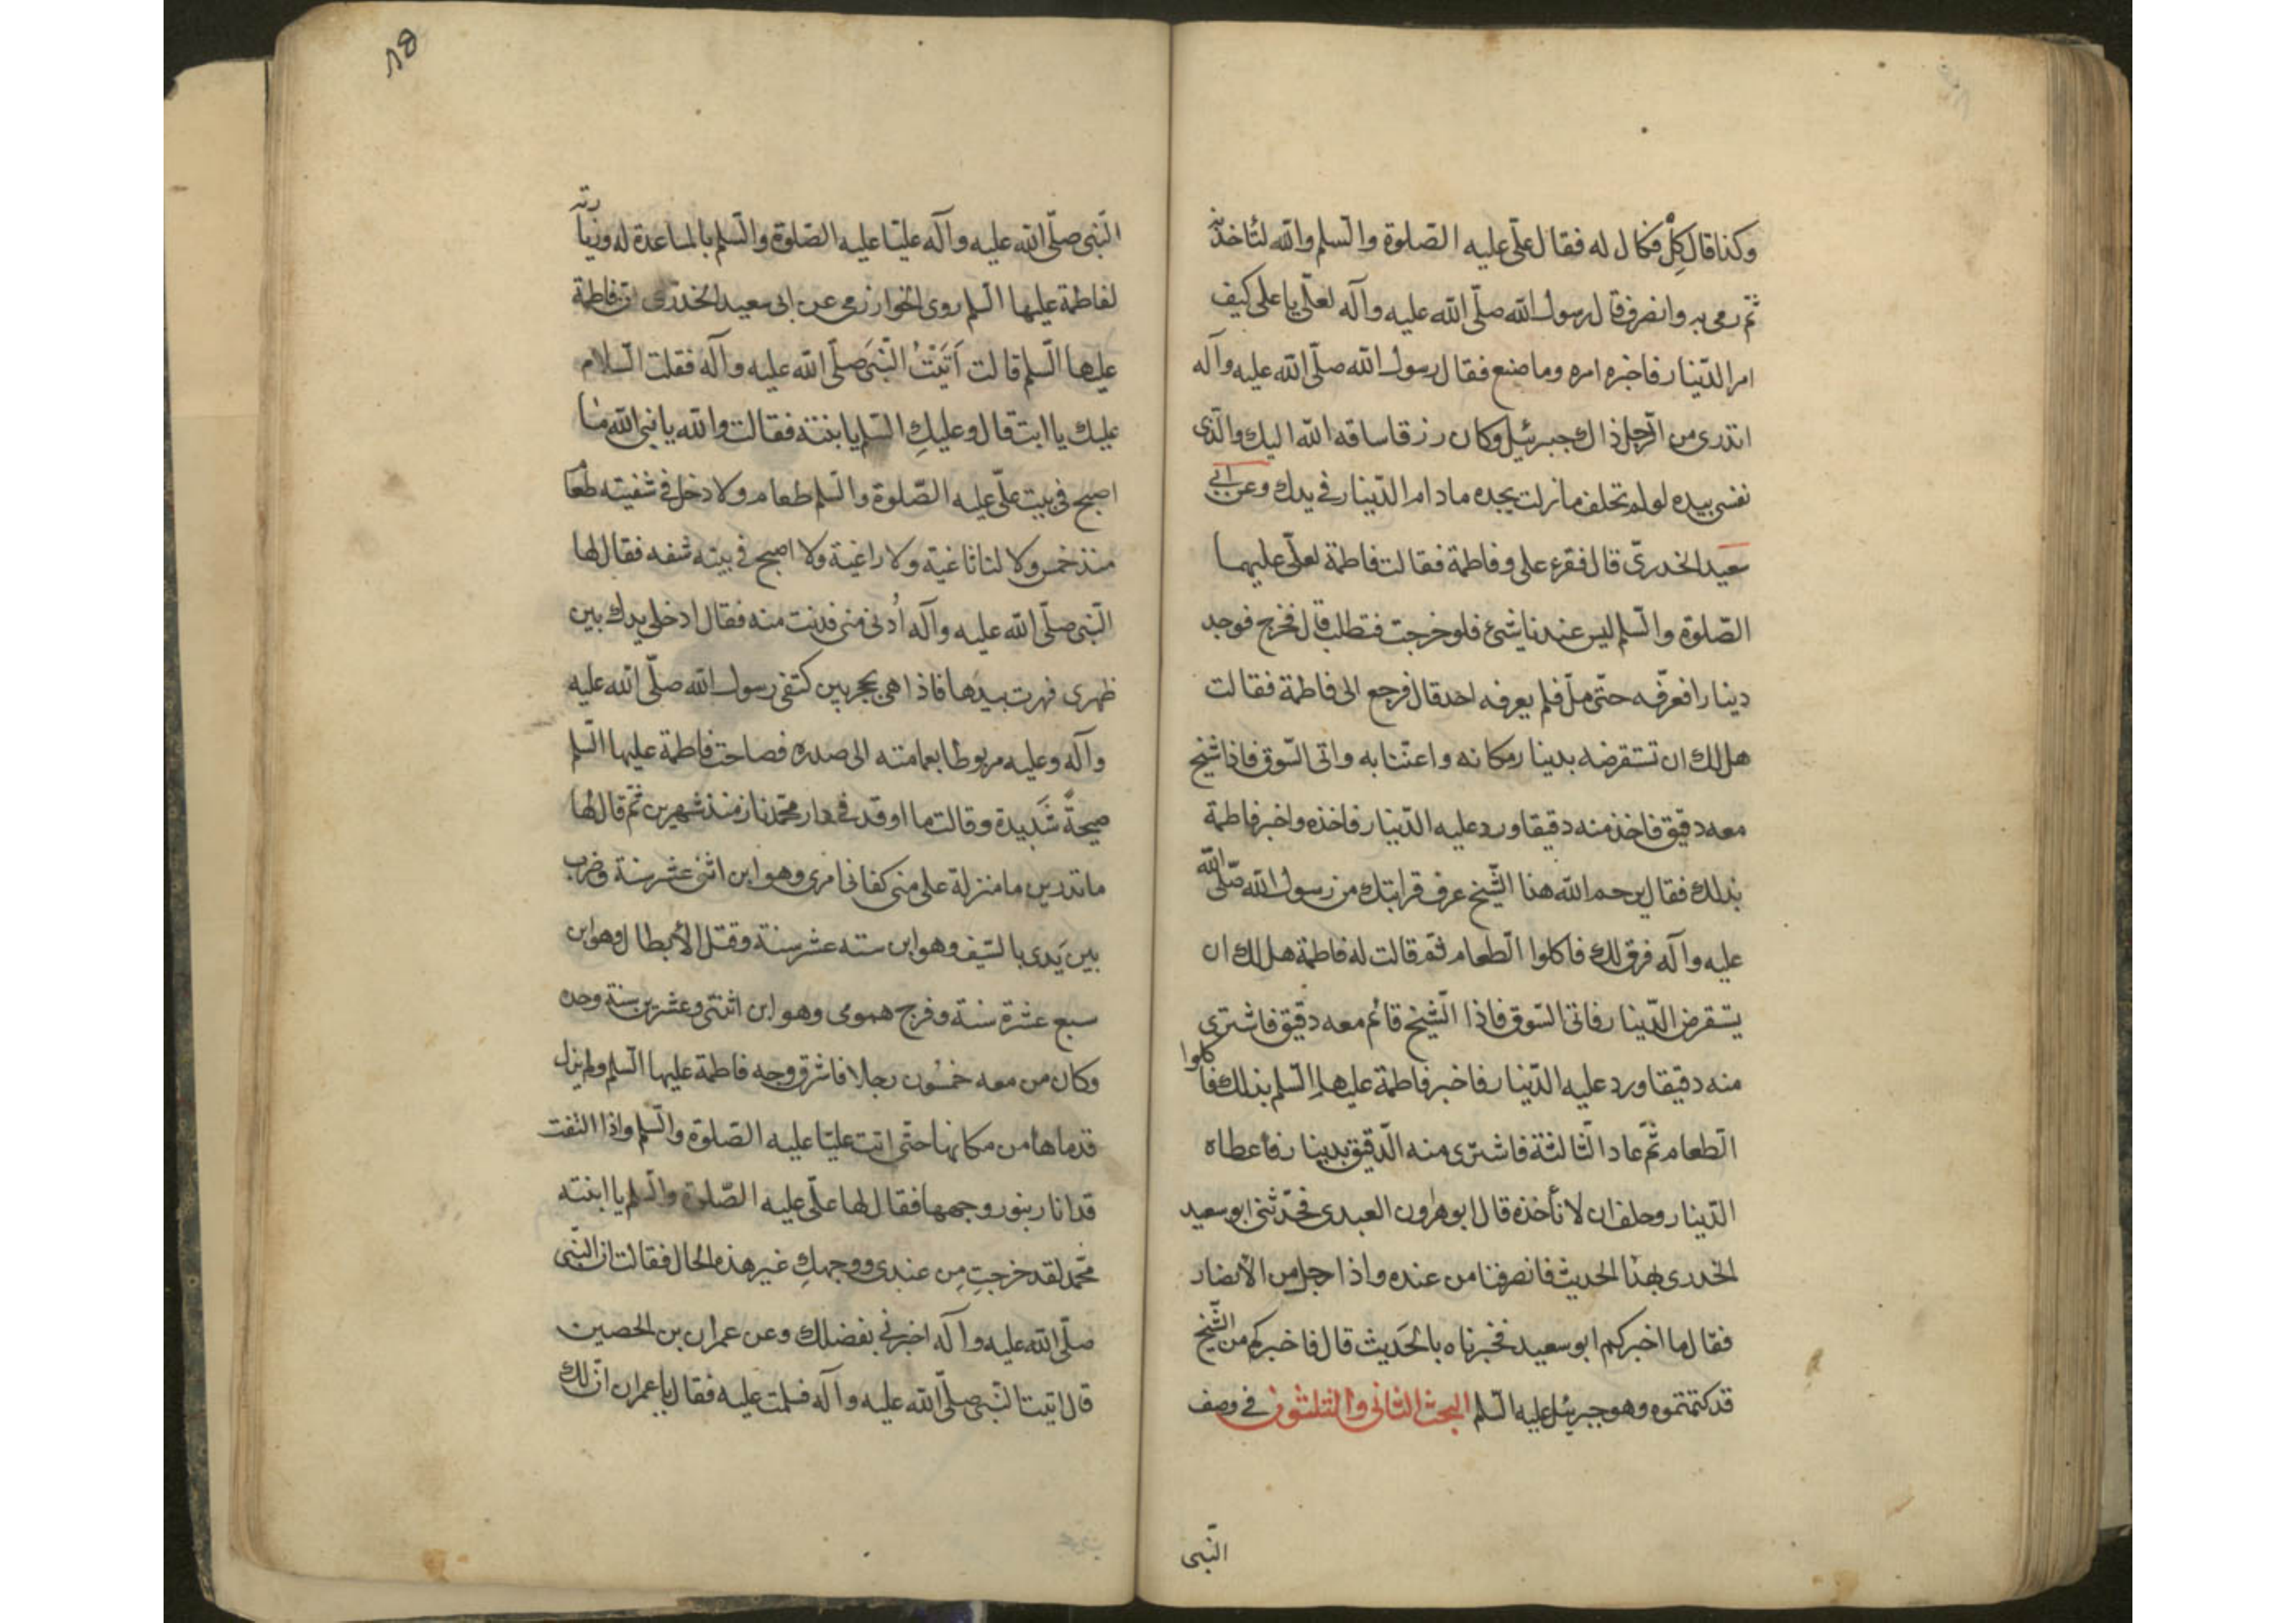 وكذا قال كِلْ فكال له فقال علىّ عليه الصّلوة والسّلم والله لتاخذنه
ثمّ رمى به وانصرف قال رسول الله صلّى الله عليه وآله لعلىّ يا على كيف
امر الدّينار فاخبره امره وما صنع فقال رسول الله صلّى الله عليه وآله
اتدرى من الرّجل ذاك جبرئيل وكان رزقا ساقه الله اليك والّذى
نفسى بيده لو لم تحلف مازلت تجده مادام الدّينار فى يدك وعن ابى
سعيد الخدرىّ قال فقرع على وفاطمة فقالت فاطمة لعلىّ عليهما
الصّلوة والسّلم ليس عندنا شئ فلو خرجت فتطلب قال فخرج فوجد
دينارا فعرّفه حتّى ملّ فلم يعرفه احد قال فرجع الى فاطمة فقالت
هل لك ان تستقرضه بدينار مكانه واعتنا به واتى السّوق فاذا شيخ
معه دقيق فاخذ منه دقيقا ورد عليه الدّينار فاخذه واخبر فاطمة
بذلك فقال يرحم الله هذا الشّيخ عرف قرابتك من رسول الله صلّى الله
عليه وآله فرق لك فاكلوا الطعام ثمّ قالت له فاطمة هل لك ان
يستقرض الدّينار فاتى السّوق فاذا الشّيخ قائم معه دقيق فاشترى
منه دقيقا ورد عليه الدّينار فاخبر فاطمة عليها السّلم بذلك فاكلوا
الطعام ثمّ عاد الثّالثة فاشترى منه الدّقيق بدينار فأعطاه
الدّينار وحلف ان لا نأخذه قال ابو هرون العبدى فحدّثنى ابو سعيد
الخدرى بهذا الحديث فانصرفنا من عنده واذا رجل من الأنصار
فقال ما اخبركم ابو سعيد فخبرناه بالحَديث قال فاخبركم من الشّيخ
قد كتمتموه وهو جبرئيل عليه السّلم البحث الثانى والثلثون فى وصف
النّبى
النّبى صلّى الله عليه وآله عليّا عليه الصّلوة والسّلم بالمساعدة له وزيارته
لفاطمة عليها السلم روى الخوارزمى عن ابى سعيد الخدرى ان فاطمة
عليها السّلم قالت أَتَيْتُ النَّبىَ صلّى الله عليه وآله فقلت السّلام
عليك يا ابت قال وعليكِ السّلم يا بنته فقالت والله يا نبى الله ما
اصبح فى بيت علىّ عليه الصّلوة والسّلم طعام ولا دخل فى شفتيه طعام
منذ خمس ولا لنا ثاغية ولا راغية ولا اصبح فى بيته شفه فقال لها
النّبى صلّى الله عليه وآله اُدنى منى فدنت منه فقال ادخلى يدك بين
ظهرى فهرت بيدها فاذا هى بحجر بين كتفى رسول الله صلّى الله عليه
وآله وعليه مربوطا بعمامته الى صدره فصاحت فاطمة عليها السّلم
صيحةً شَديدة وقالت ما اوقد فى دار محمّد نار منذ شهرين ثمّ قال لها
ما تدرين ما منزلة على منى كفانى امرى وهو ابن اثنى عشر سنة وضرب
بين يَدى بالسّيف وهو ابن سته عشر سنة وقتل الأبطال وهو ابن
سبع عشرة سنة وفرج همومى وهو ابن اثنتى وعشرين سنة وحده
وكان من معه خمسُون رجلا فاشرق وجه فاطمة عليها السّلم ولم يزل
قدماها من مكانها حتّى اتت عليّا عليه الصّلوة والسّلم واذا التفت
قد انار بنور وجهها فقال لها علىّ عليه الصّلوة والسّلم يا ابنته
محمّد لقد خرجتِ مِن عندى ووجهكِ غير هذه الحال فقالت ان النّبى
صلّى الله عليه وآله اخبرنى بفضلك وعن عمران بن الحصين
قال اتيت النّبى صلّى الله عليه وآله فسلمت عليه فقال يا عمران ان لك